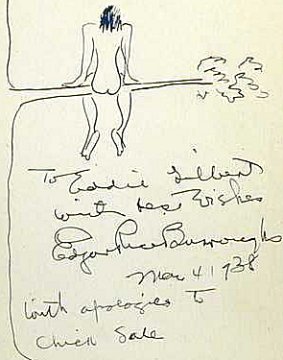 To Eddie Gilbert
with best wishes
Edgar Rice Burroughs
Mar 4 1938
with apologies to
Chick Sale